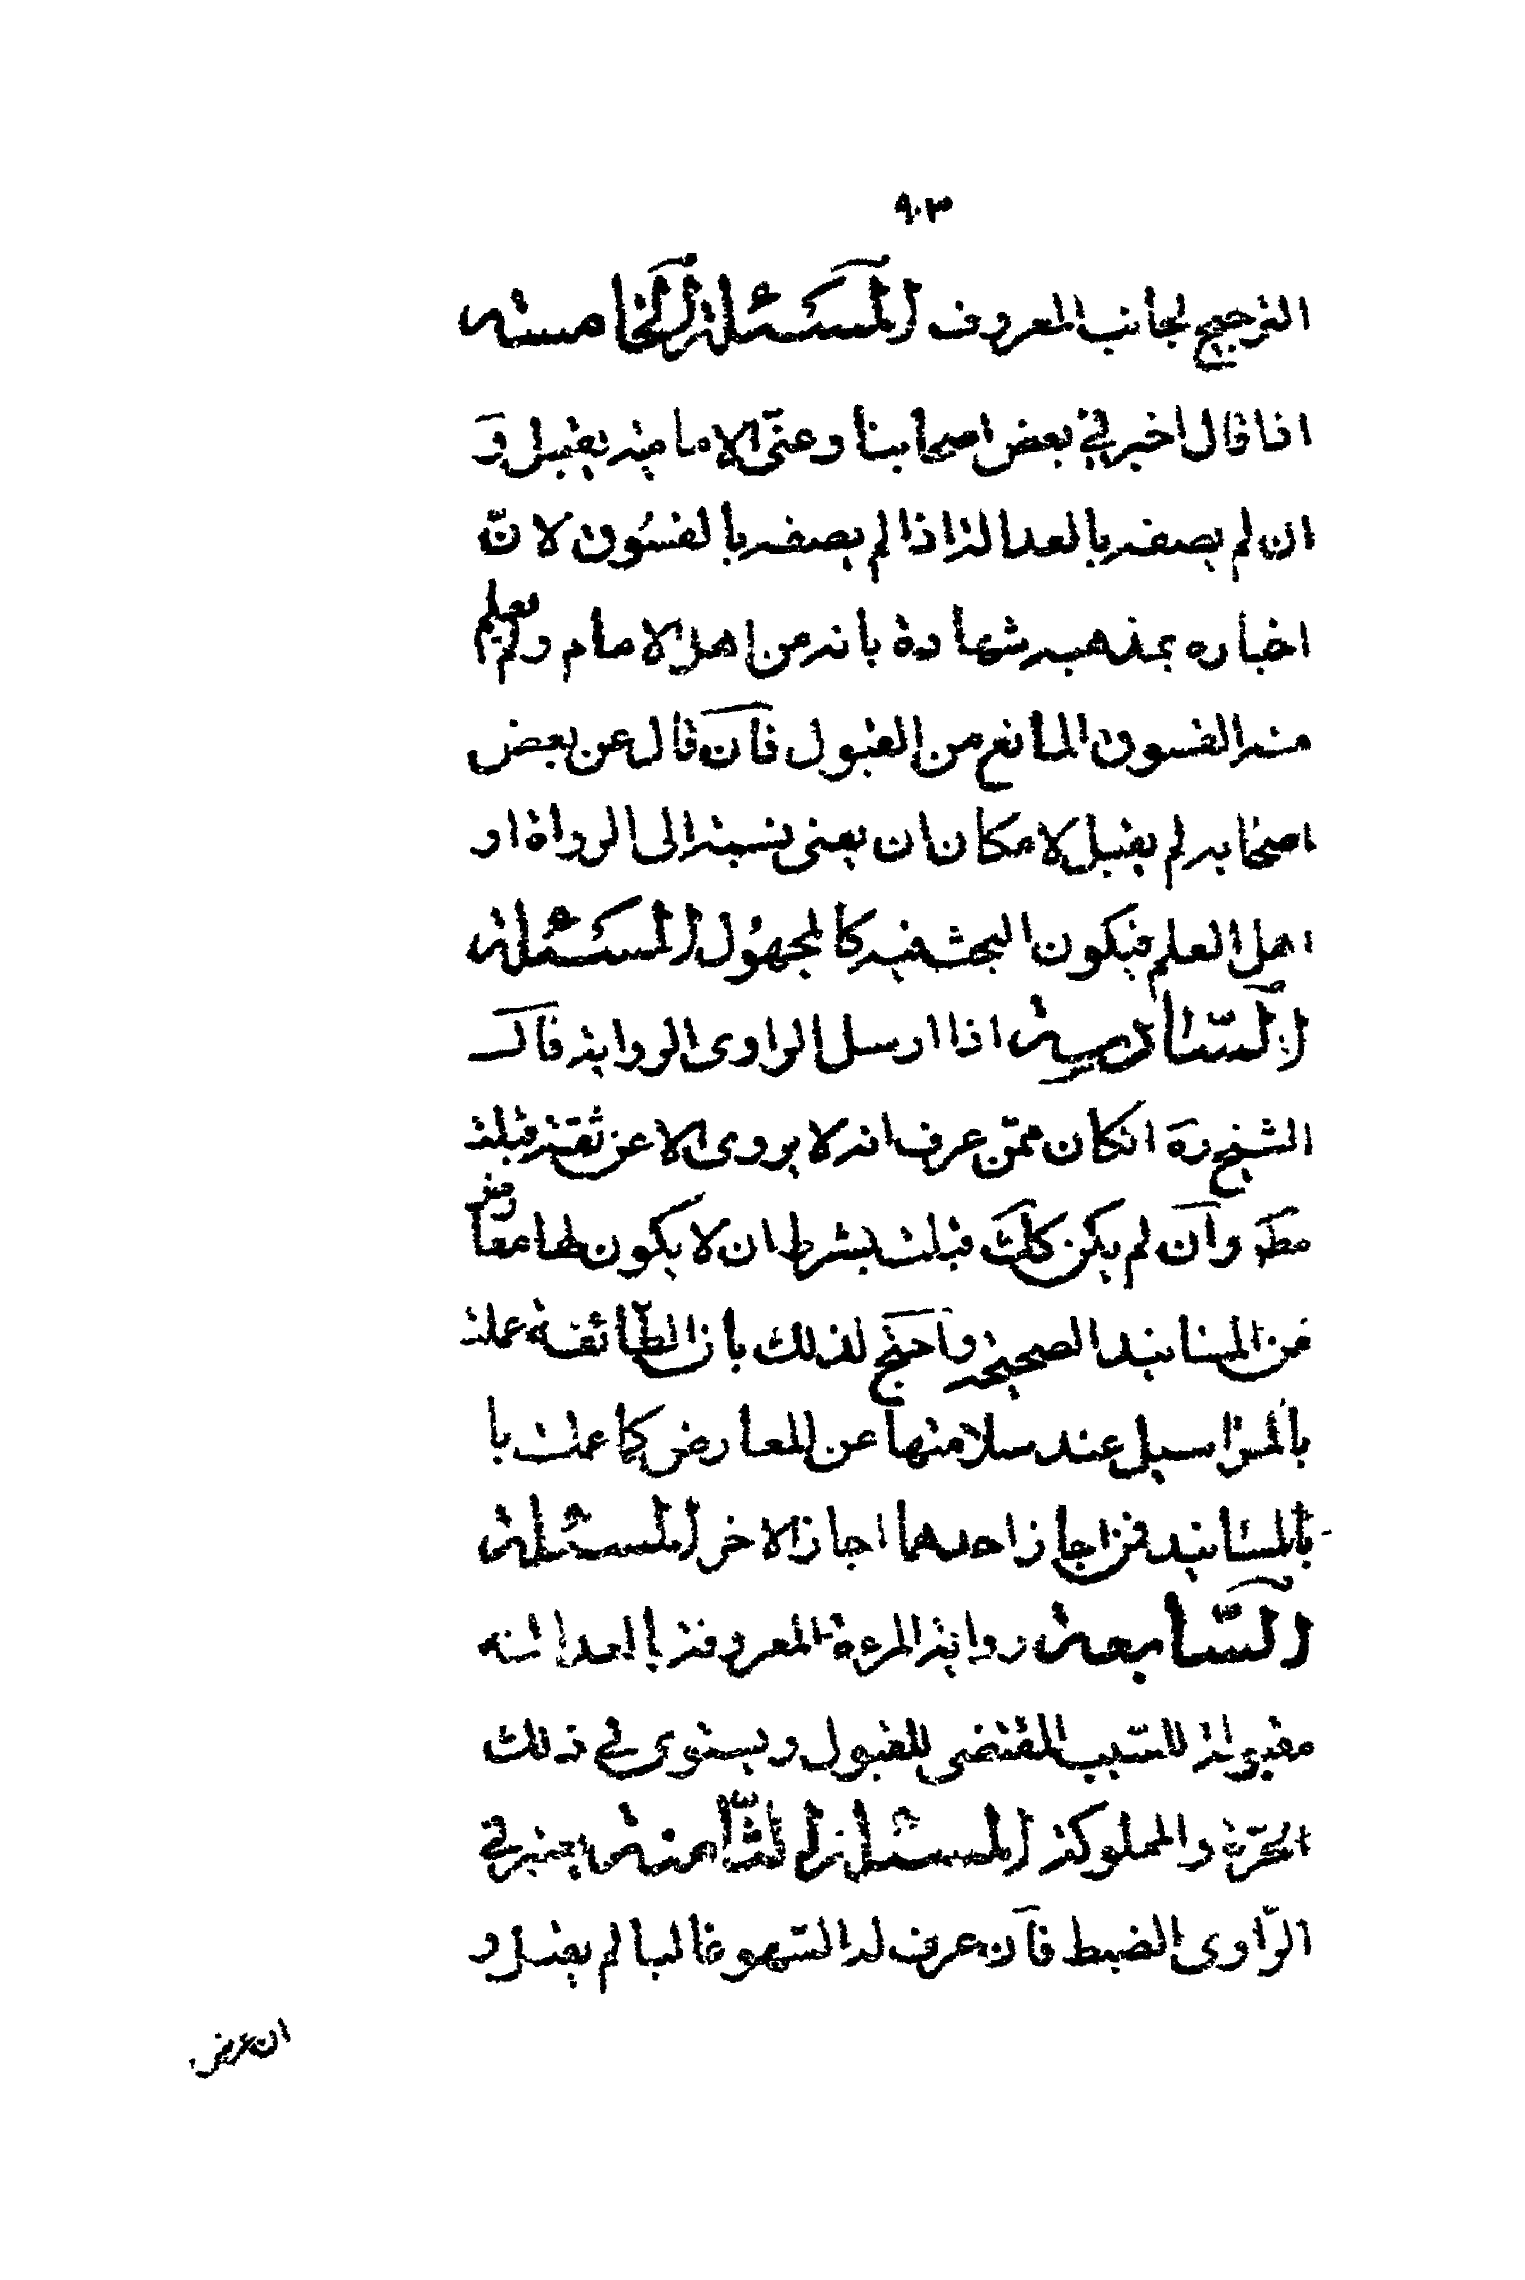 ١٠٣
الترجيح لجانب المعروف المسئلة الخامسة
اذا قال اخبرني بعض اصحابنا وعنى الامامية يقبل و
ان لم يصفه بالعدالة اذا لم يصفه بالفسوق لانّ
اخباره بمذهبه شهادة بانه من اهل الامام ولم يعلم
منه الفسوق المانع من القبول فان قال عن بعض
اصحابه لم يقبل لامكان ان يعنى نسبته الى الرواة او
اهل العلم فيكون البحث فيه كالمجهول المسئلة
السّادسة اذا ارسل الراوى الرواية قال
الشيخ ره انكان ممّن عرف انه لا يروى الا عن ثقة قبلت
مط وان لم يكن كك قبلت بشرط ان لا يكون لها معارض
من المسانيد الصحيحة واحتج لذلك بان الطّائفة عملت
بالمراسيل عند سلامتها عن المعارض كما عملت با
بالمسانيد فمن اجاز احدهما اجاز الاخر المسئلة
السّابعة رواية المرءة المعروفة بالعدالة
مقبولة للسّبب المقتضى للقبول ويستوى في ذلك
الحرّة والمملوكة المسئلة الثّامنة يعتبر في
الرّاوى الضبط فان عرف له السّهو غالبا لم يقبل و
ان عرض